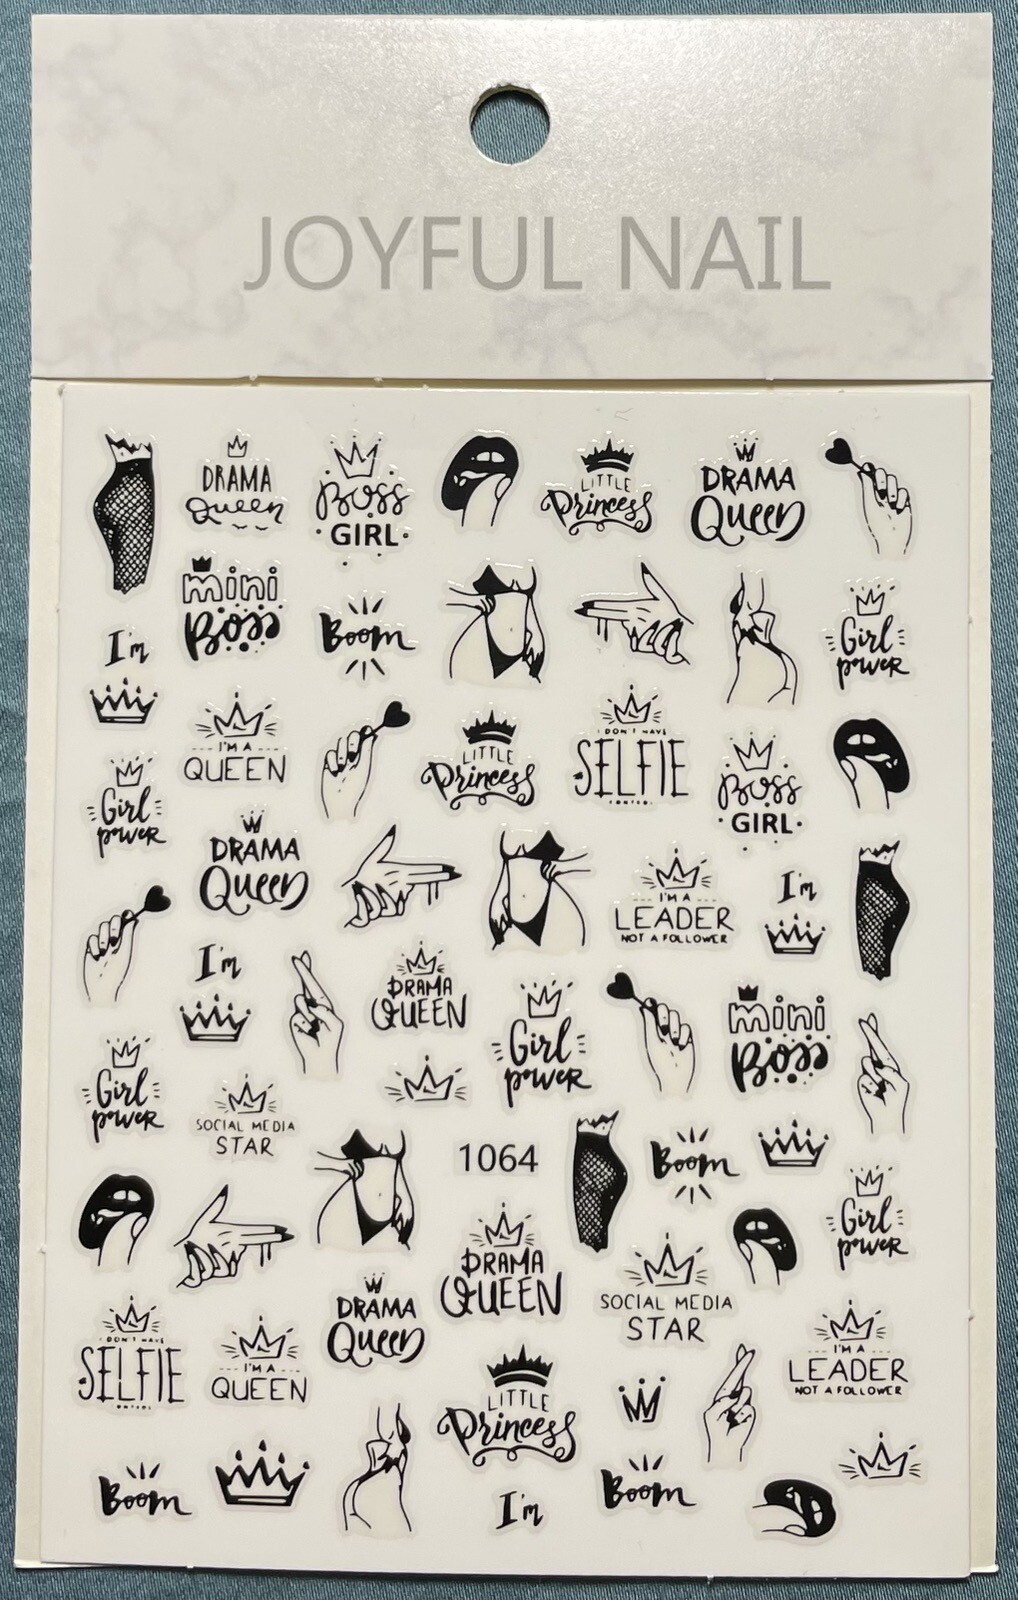 JOYFUL NAIL
DRAMA
Queen
Boss
GIRL
LITTLE
Princess
DRAMA
Queen
mini
Boss
I'm
Boom
Girl
power
I'M A
QUEEN
LITTLE
Princess
DON'T HAVE
SELFIE
CONTROL
Boss
GIRL
Girl
power
DRAMA
Queen
I'M A
LEADER
NOT A FOLLOWER
I'm
I'm
DRAMA
QUEEN
Girl
power
mini
Boss
Girl
power
SOCIAL MEDIA
STAR
1064
Boom
Girl
power
DRAMA
QUEEN
SOCIAL MEDIA
STAR
DON'T HAVE
SELFIE
CONTROL
I'M A
QUEEN
DRAMA
Queen
LITTLE
Princess
I'M A
LEADER
NOT A FOLLOWER
Boom
I'm
Boom